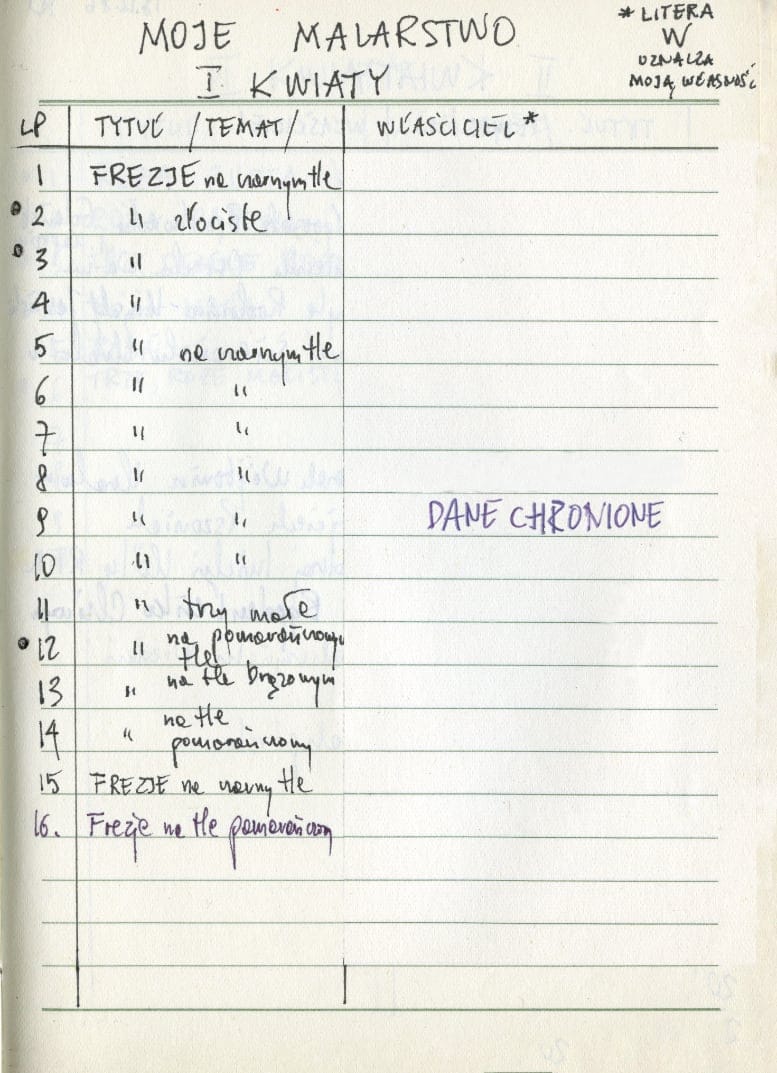 MOJE MALARSTWO
I KWIATY
* LITERA
W
OZNACZA
MOJĄ WŁASNOŚĆ
LP TYTUŁ /TEMAT/ WŁAŚCICIEL*
1 FREZJE na czarnym tle
2 " złociste
3 "
4 "
5 " na czarnym tle
6 " "
7 " "
8 " "
9 " " DANE CHRONIONE
10 " "
11 " trzy małe
12 " na pomarańczowym
tle
13 " na tle brązowym
14 " na tle
pomarańczowy
15 FREZJE na czarny tle
16. Frezje na tle pomarańczowy